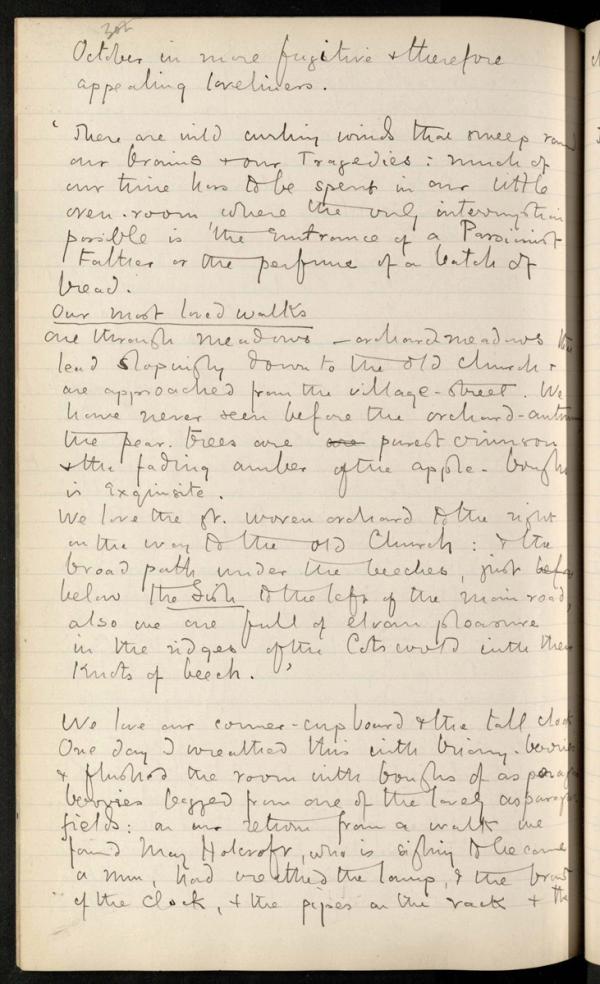 30th
October in more fugitive & therefore
appealing loveliness.
' There are wild curling winds that sweep roun
our brains & our Tragedies : much of
our time has to be spent in our little
oven-room where the only interruption
possible is the Entrance of a Passionist
Father or the perfume of a batch of
bread.
Our most loved walks
are through meadows – orchard-meadows tha
lead slopingly down to the old church &
are approached from the village-street. We
have never seen before the orchard-autum
the pear-trees are are purest crimson
& the fading amber of the apple-bough
is Exquisite.
We love the gt. woven orchard to the right
on the way to the old Church : & the
broad path under the beeches, just befor
below the to the left of the main road,
also we are full of pleasure
in the ridges of the Cotswold with their
Knots of beech. '
We love our corner-cupboard & the tall cloc
One day I wreathed this with briony-berries
& flushed the room with boughs of asparag
berries begged from one of the lovely asparagus
fields : on our return from a walk we
found May Holcroft, who is sighing to become
a nun, had wreathed the lamp, & the brow
of the clock, & the pipes on the rack & the